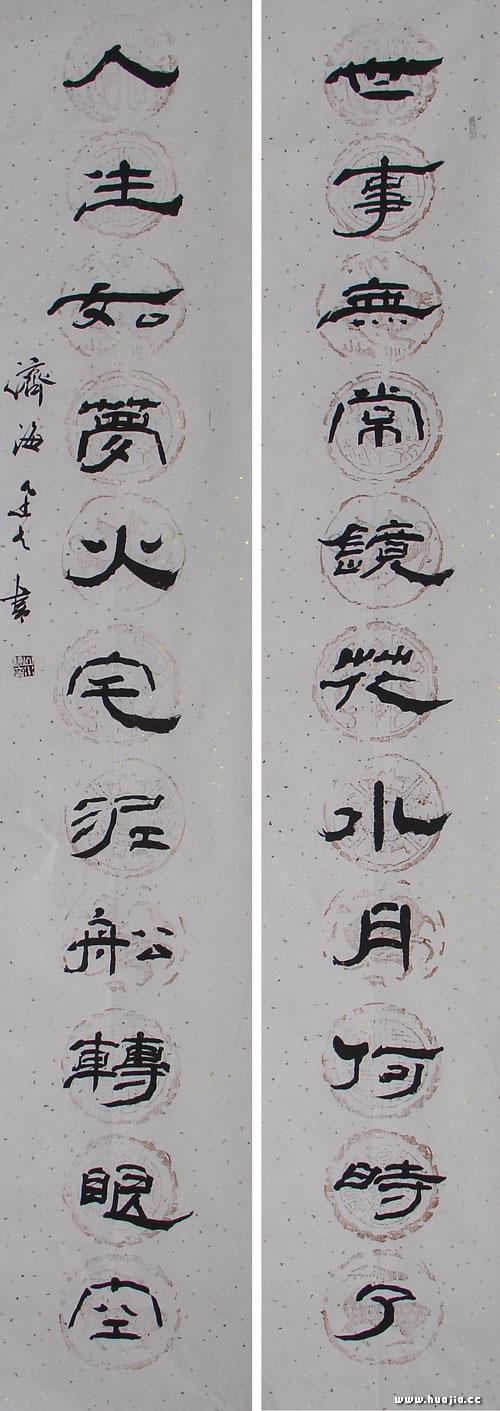 世事無常鏡花水月何時了
人生如夢火宅泥船轉眼空
濟海
書
www.huajia.cc